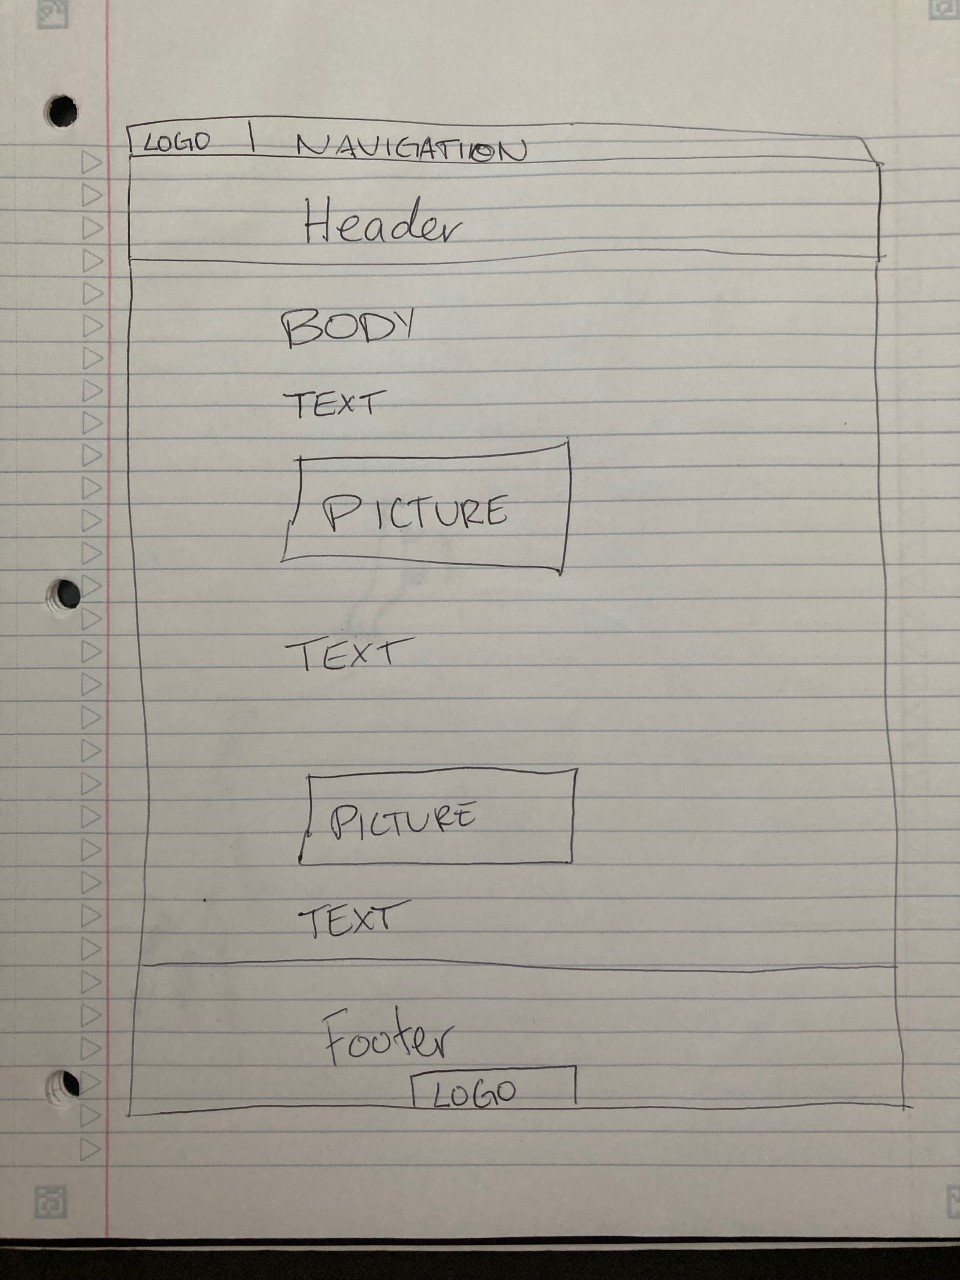 LOGO | NAVIGATION
Header
BODY
TEXT
PICTURE
TEXT
PICTURE
TEXT
Footer
LOGO